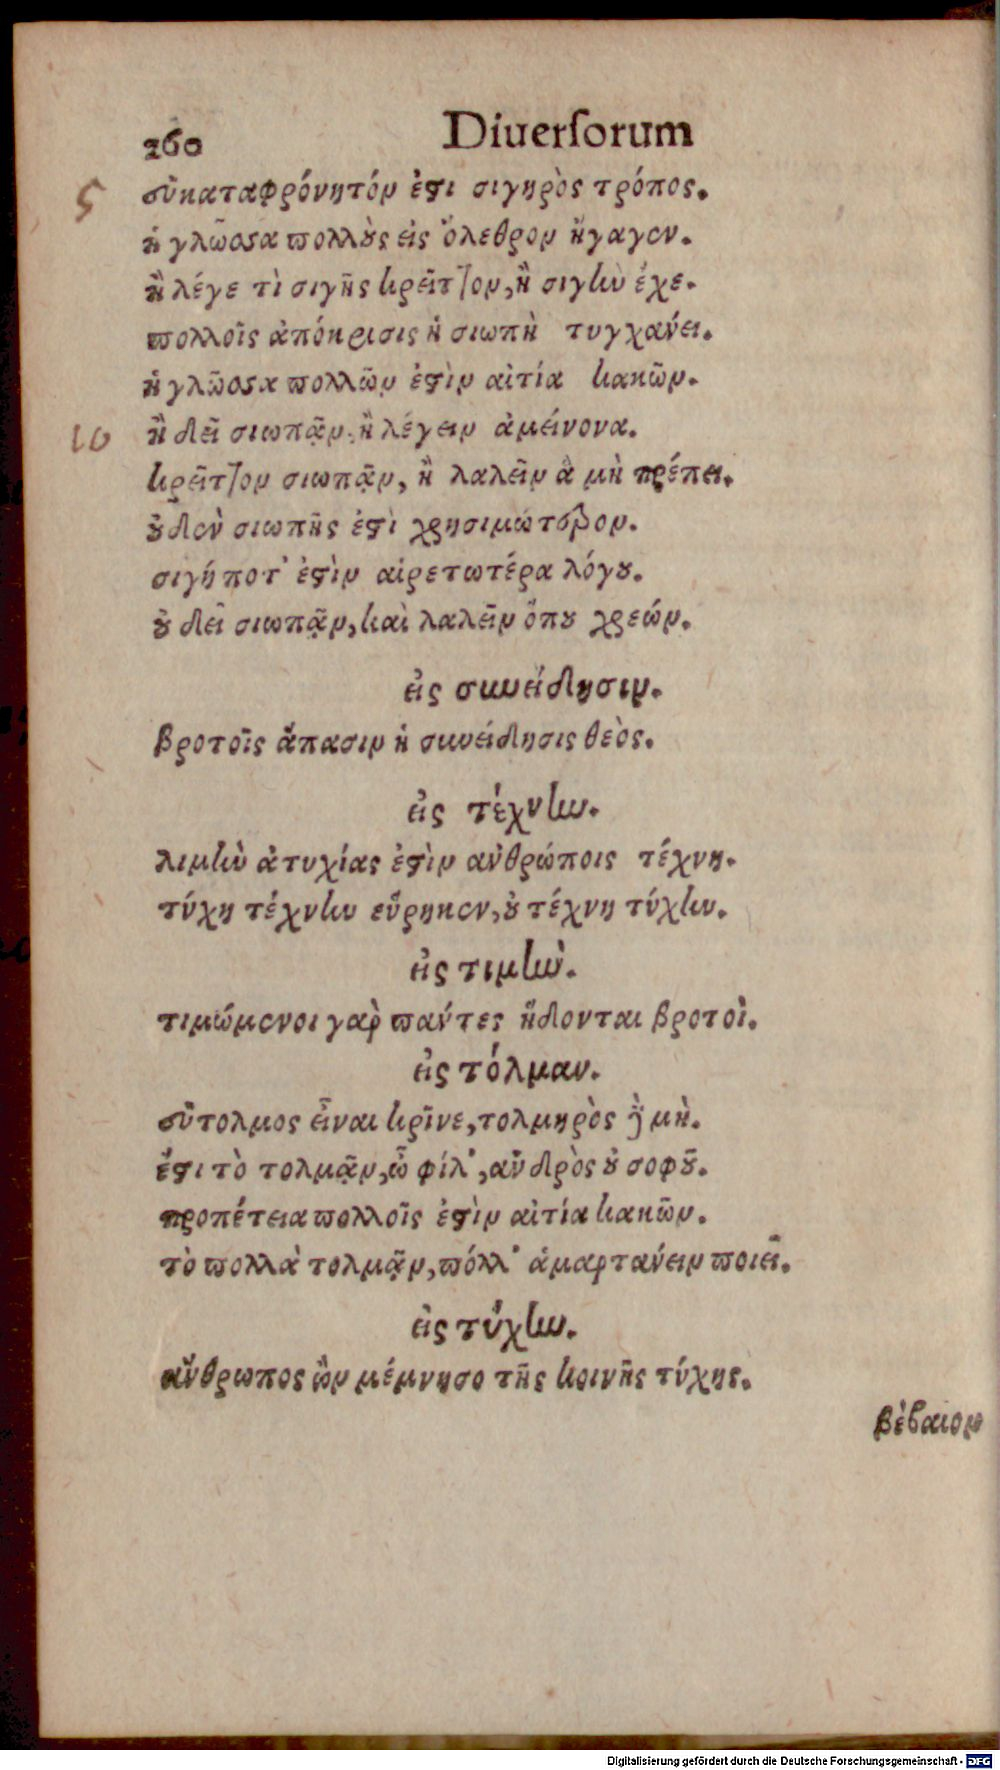 260 Diuerſorum
5 εὐκαταφρόνητόν ἐστι σιγηρὸς τρόπος.
ἡ γλῶσσα πολλοὺς εἰς ὄλεθρον ἤγαγεν.
ἢ λέγε τὶ σιγῆς κρεῖττον, ἢ σιγὴν ἔχε.
πολλοῖς ἀπόκρισις ἡ σιωπὴ τυγχάνει.
ἡ γλῶσσα πολλῶν ἐστὶν αἰτία κακῶν.
10 ἢ δεῖ σιωπᾷν, ἢ λέγειν ἀμείνονα.
κρεῖττον σιωπᾷν, ἢ λαλεῖν ἃ μὴ πρέπει.
οὐδὲν σιωπῆς ἐστὶ χρησιμώτερον.
σιγή ποτ' ἐστὶν αἱρετωτέρα λόγου.
οὗ δεῖ σιωπᾷν, καὶ λαλεῖν ὅπου χρεών.
εἰς συνείδησιν.
βροτοῖς ἅπασιν ἡ συνείδησις θεὸς.
εἰς τέχνην.
λιμὴν ἀτυχίας ἐστὶν ἀνθρώποις τέχνη.
τύχη τέχνην εὕρηκεν, οὐ τέχνη τύχην.
εἰς τιμὴν.
τιμώμενοι γὰρ πάντες ἥδονται βροτοὶ.
εἰς τόλμαν.
εὔτολμος εἶναι κρῖνε, τολμηρὸς δὲ μὴ.
ἔστι τὸ τολμᾷν, ὦ φίλ', ἀνδρὸς οὐ σοφοῦ.
προπέτεια πολλοῖς ἐστὶν αἰτία κακῶν.
τὸ πολλὰ τολμᾷν, πόλλ' ἁμαρτάνειν ποιεῖ.
εἰς τύχην.
ἄνθρωπος ὢν μέμνησο τῆς κοινῆς τύχης.
βέβαιον
Digitalisierung gefördert durch die Deutsche Forschungsgemeinschaft - DFG